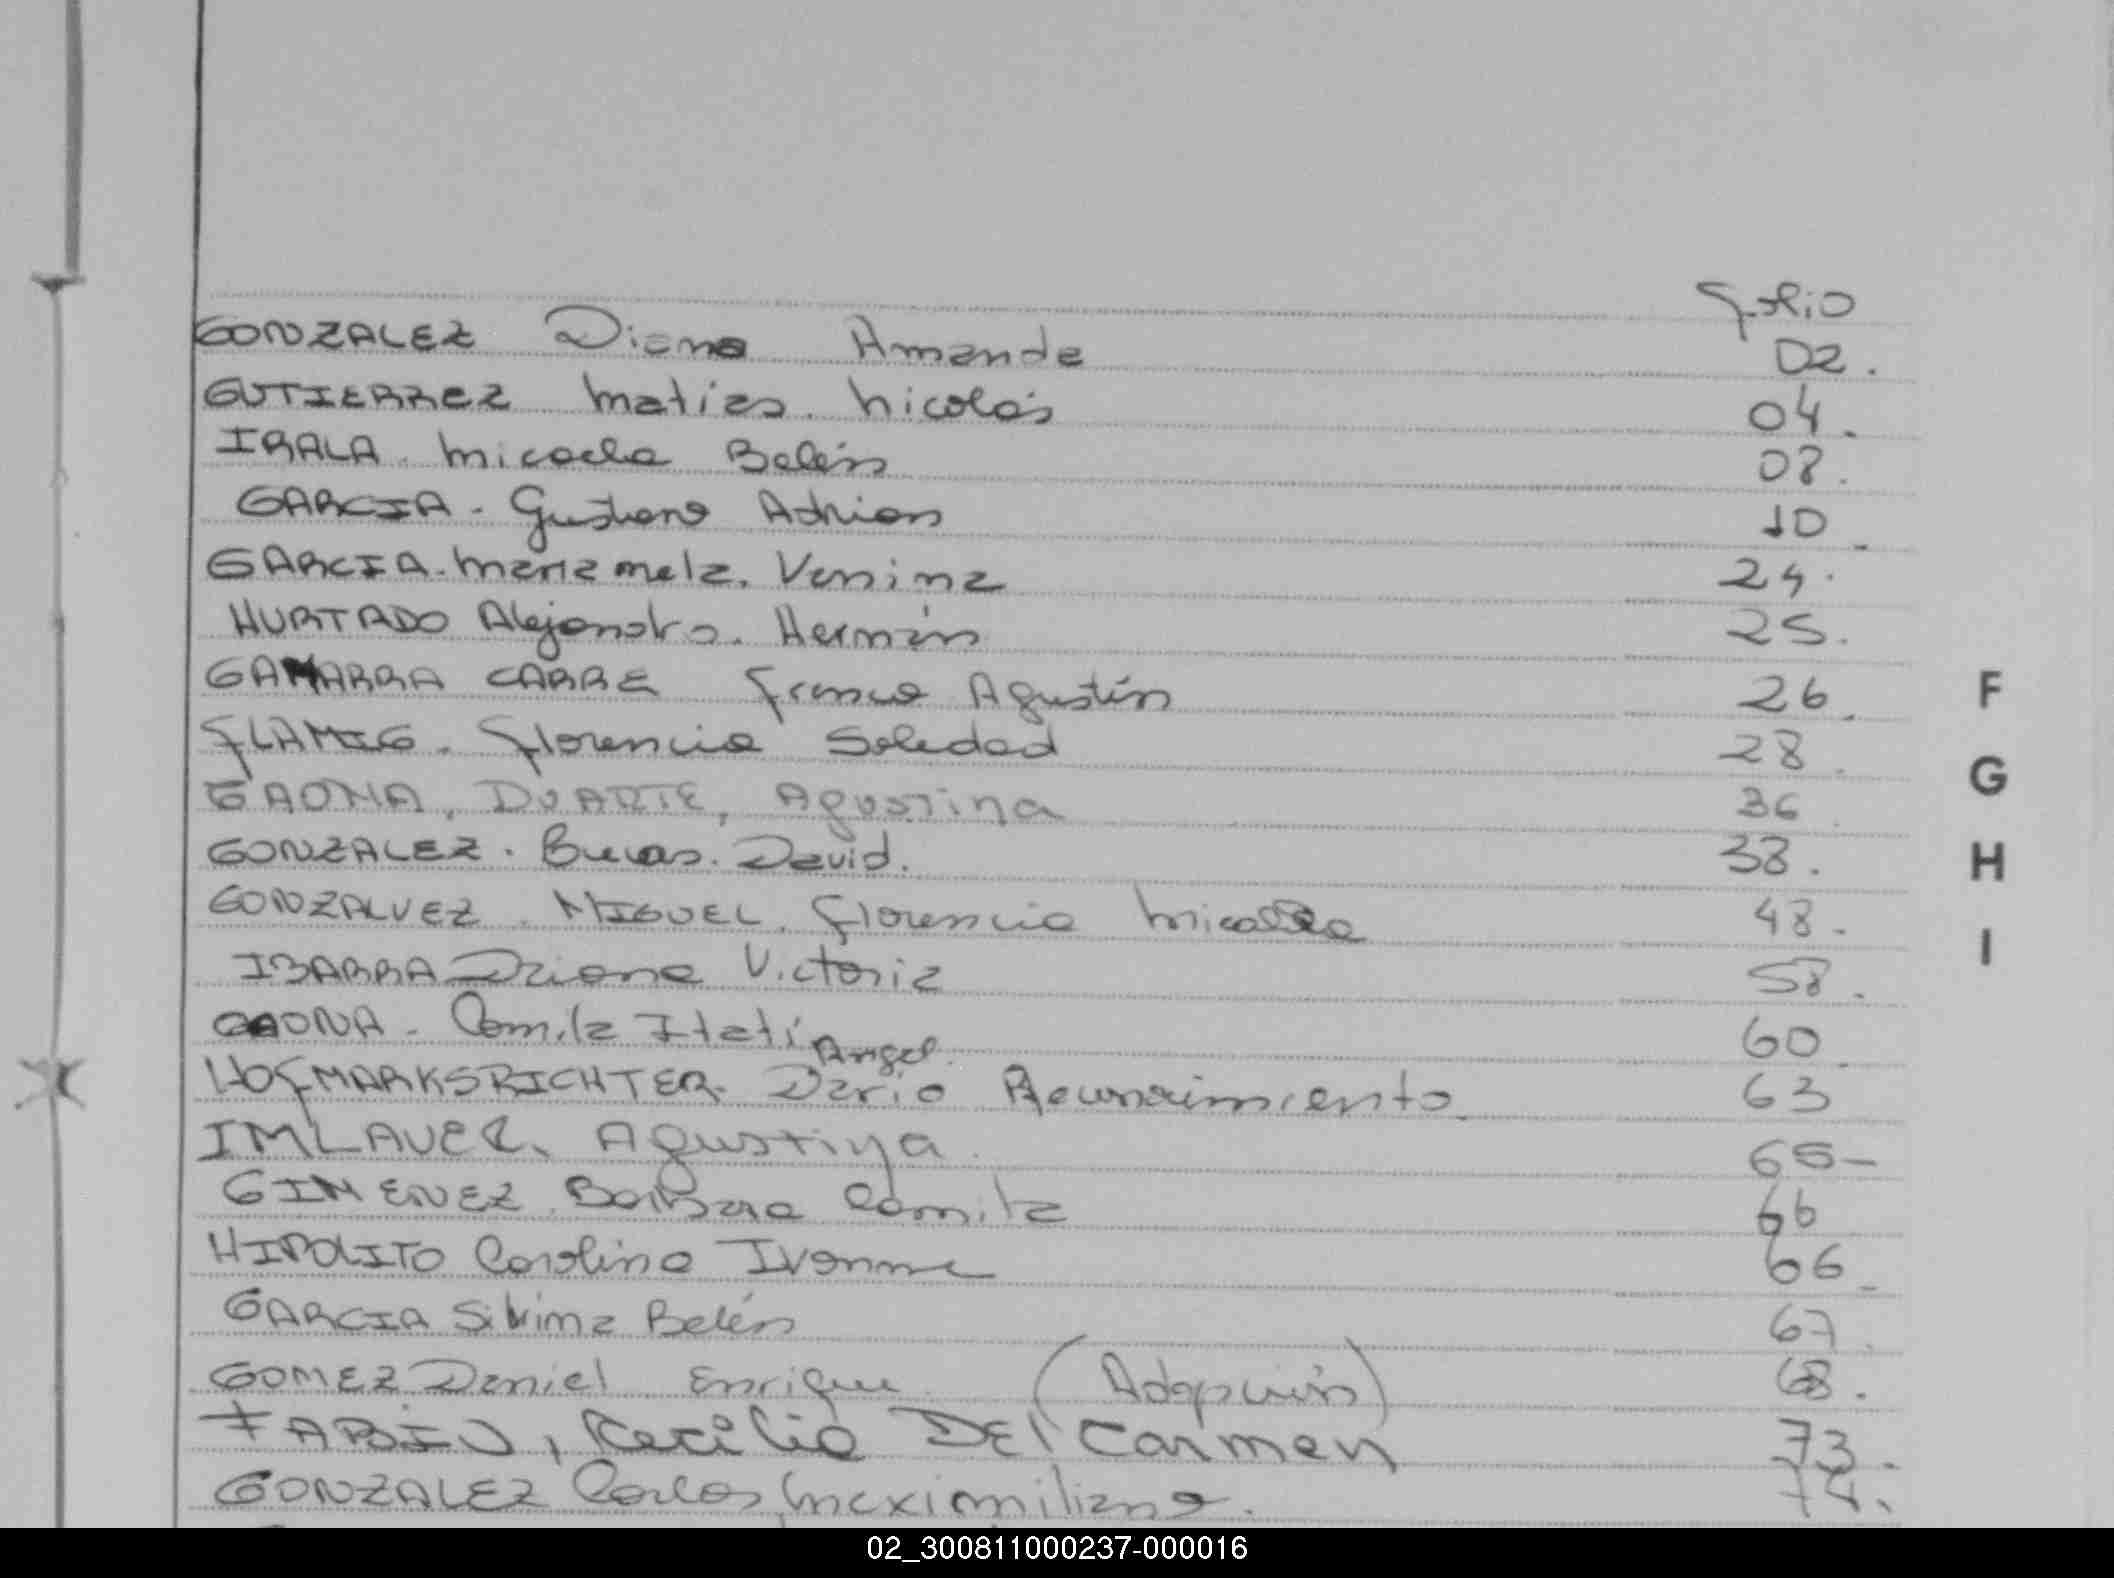 Folio
GONZALEZ Diana Amanda 02.
GUTIERREZ Matías. Nicolás 04.
IRALA. Micaela Belén 08.
GARCIA - Gustavo Adrian 10
GARCIA. Marianela. Vanina 24.
HURTADO Alejandro. Hernán 25.
GAMARRA CARRE Franco Agustín 26.
FLAMIG. Florencia Soledad 28.
GAONA, DUARTE, Agustina 36
GONZALEZ. Lucas. David. 38.
GONZALVEZ. MIGUEL. Florencia Micaela 48.
IBARRA Daiana Victoria 58.
GAONA. Camila Itatí 60.
Angel.
HOFMARKSRICHTER. Dario Reconocimiento. 63
IMLAUER, Agustina. 65-
GIMENEZ. Barbara Camila 66
HIPOLITO Carolina Ivonne 66.
GARCIA Silvina Belén 67.
GOMEZ Daniel Enrique. (Adopción) 68.
FABIU, Cecilia DEl Carmen 73.
GONZALEZ Carlos Maximiliano. 74.
F
G
H
I
02_300811000237-000016